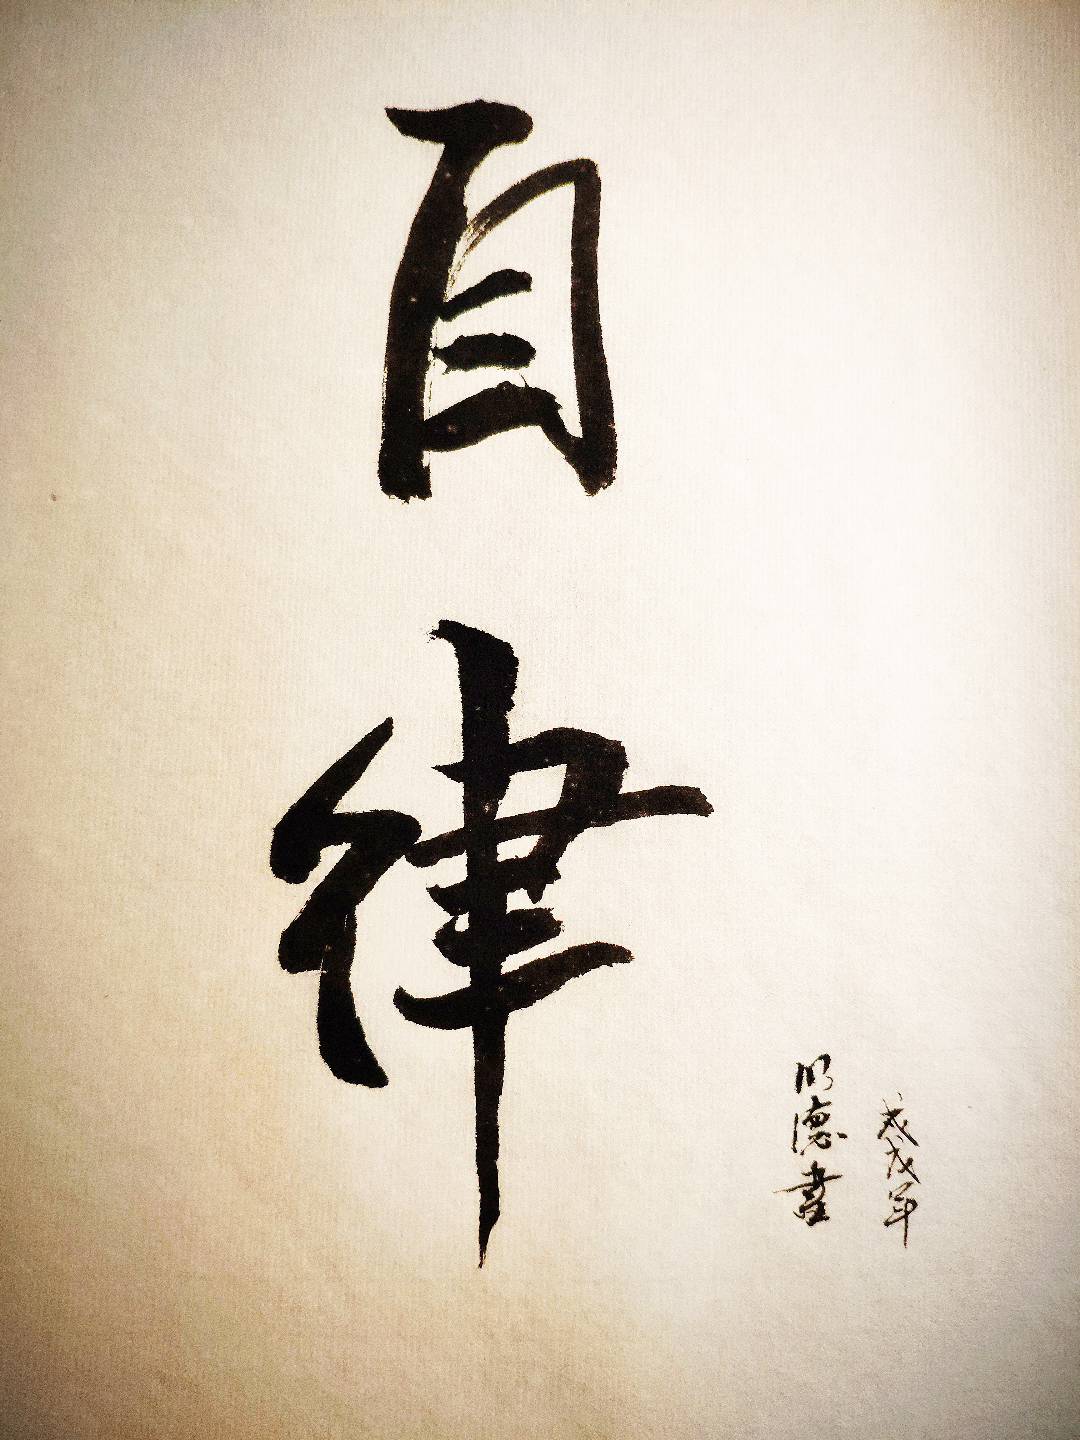 自律
戊戌年
明德書